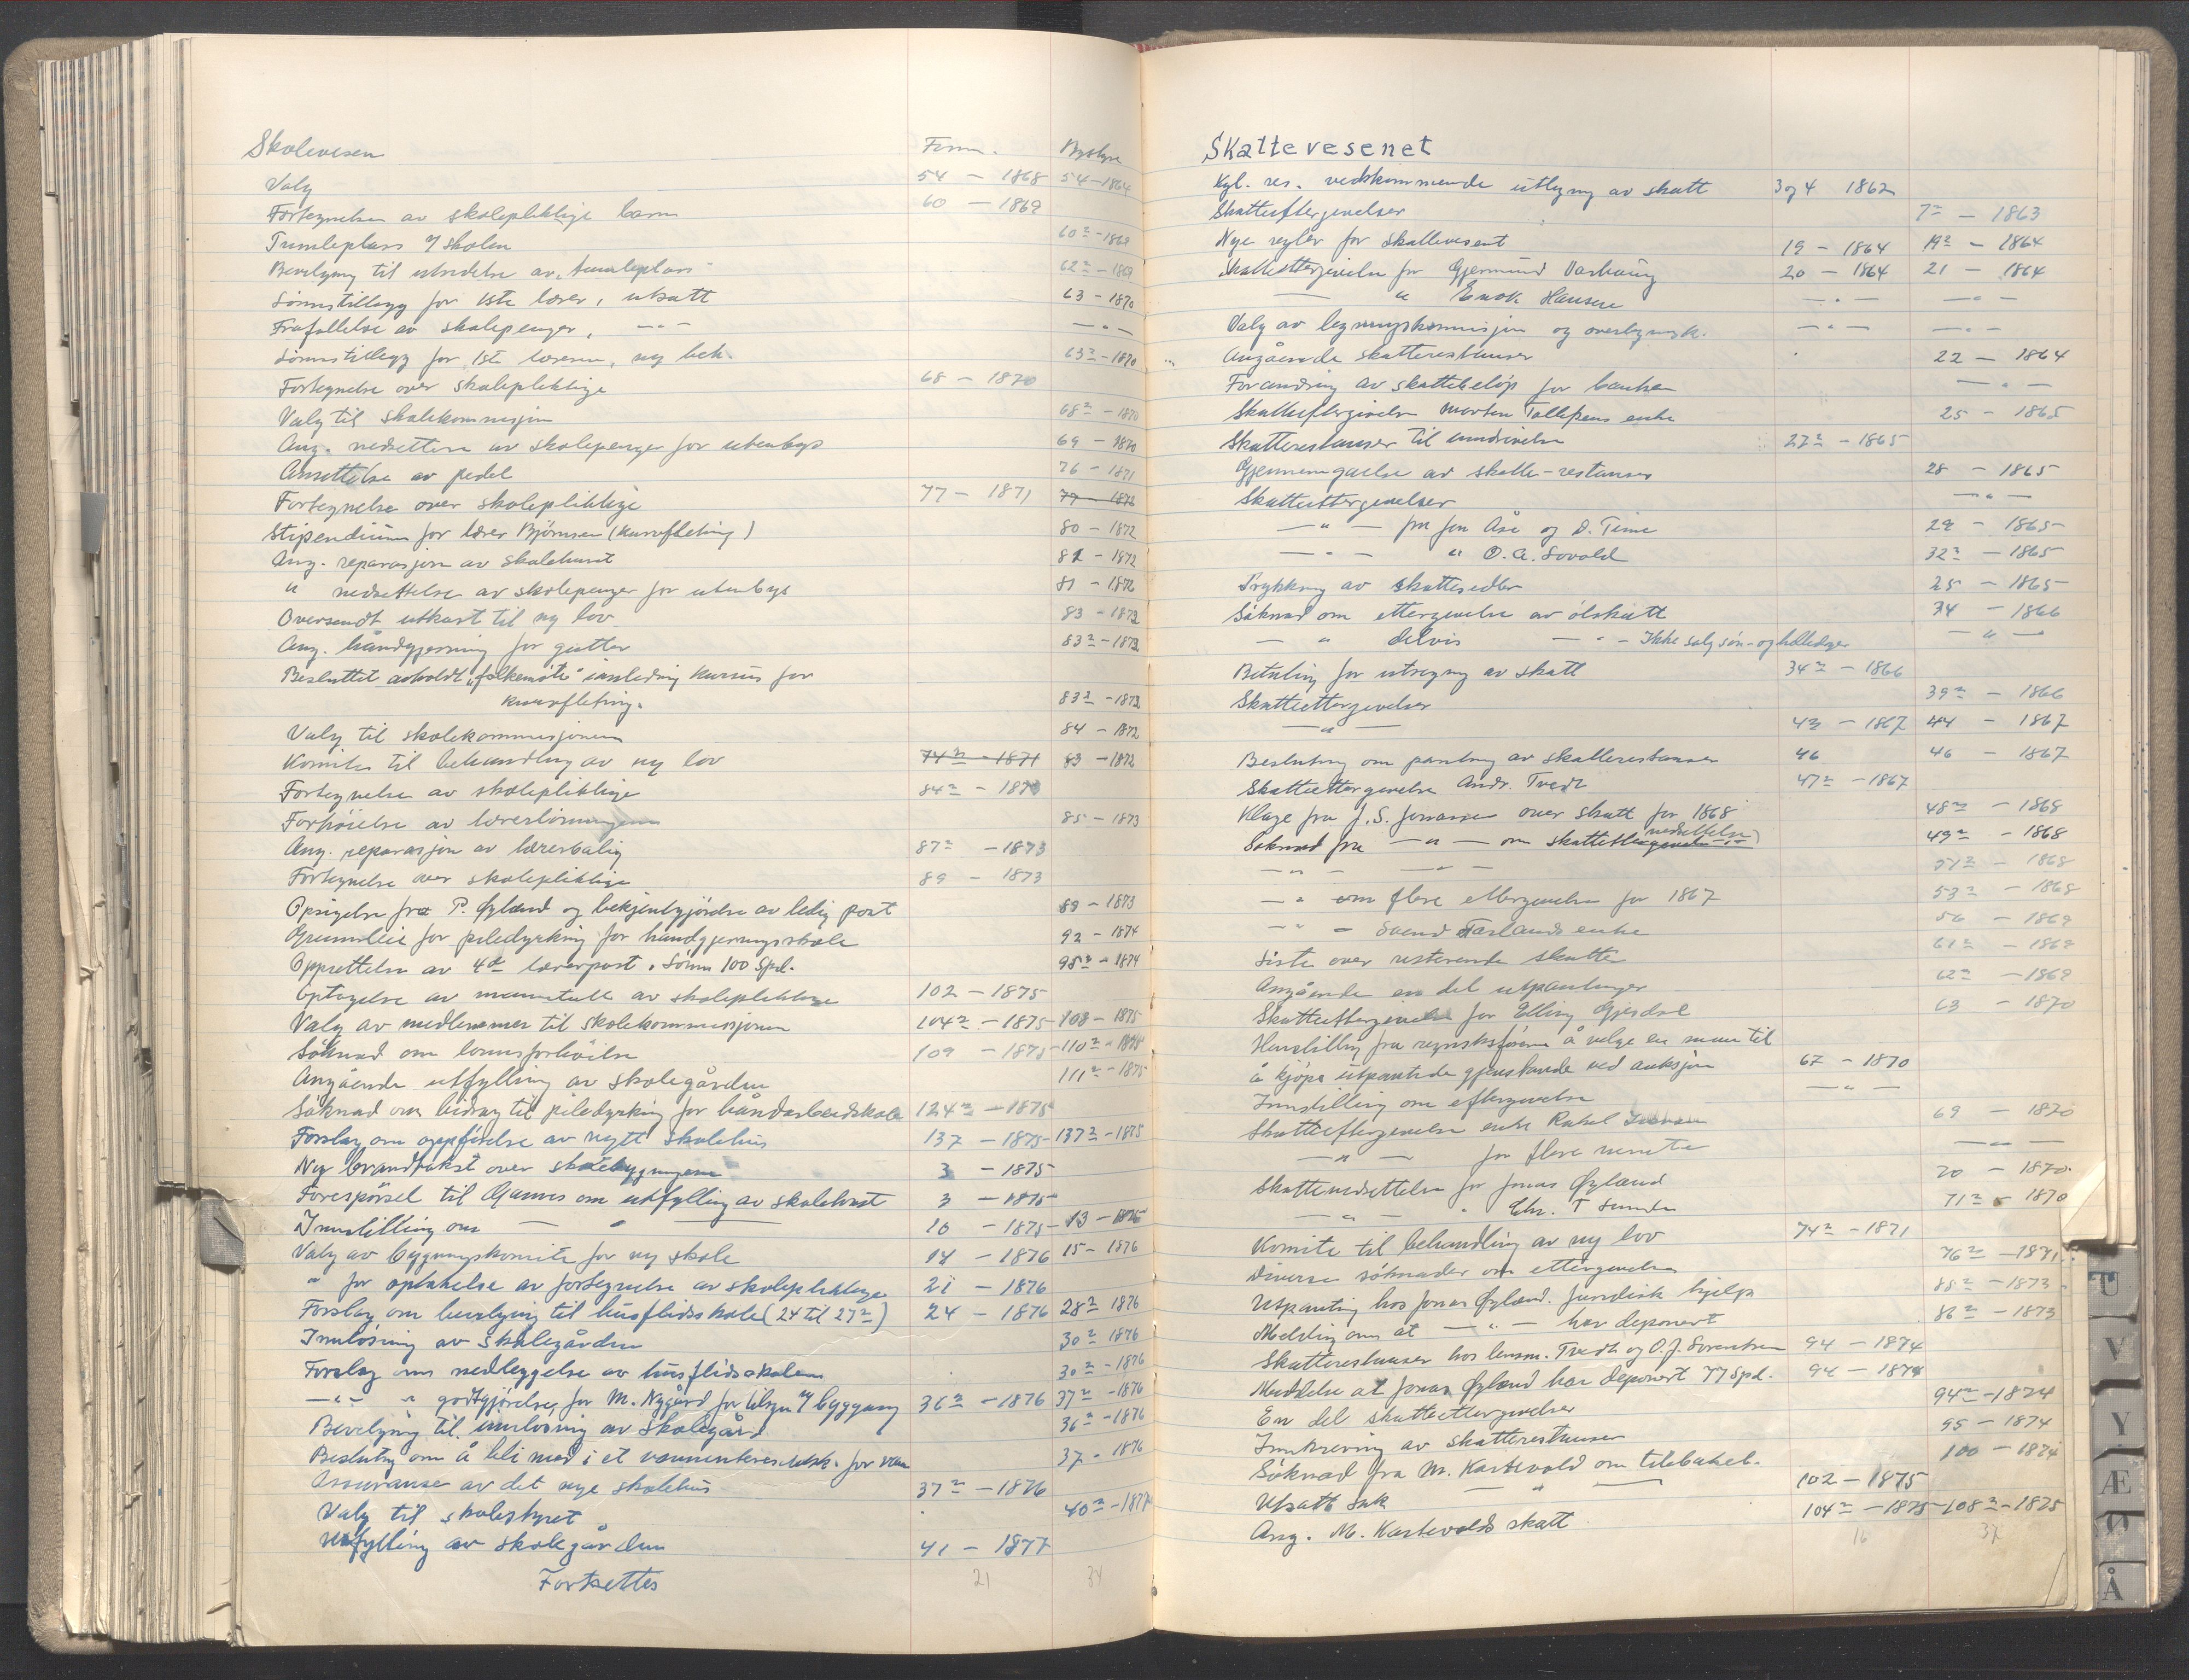 Skolevesen Form. Bystyre
Valg 54 - 1868 54-1864
Fortegnelse av skolepliktige barn 60 - 1869
Tumleplass v/ skolen 60² - 1869
Bevilgning til utredelse av "tumleplass" 62² - 1869
Lønnstillegg for 1ste lærer, utsatt 63 - 1870
Frafallelse av skolepenger, — " — — " —
Lønnstillegg for 1ste læreren, ny beh. 63² - 1870
Fortegnelse over skolepliktige 68 - 1870
Valg til skolekommisjon 68² - 1870
Ang. nedsettelse av skolepenger for utenbys 69 - 1870
Ansettelse av pedel 76 - 1871
Fortegnelse over skolepliktige 77 - 1871 77 - 1872
Stipendium for lærer Bjørnsen (kurvfletning) 80 - 1872
Ang. reparasjon av skolehuset 81 - 1872
" nedsettelse av skolepenger for utenbys 81 - 1872
Oversendt utkast til ny lov 83 - 1872
Ang. håndgjerning for gutter 83² - 1872
Besluttet avholdt "folkemøte" innledning kursus for
kurvfletning. 83² - 1872
Valg til skolekommisjonen 84 - 1872
Komite til behandling av ny lov 74² - 1871 83 - 1872
Fortegnelse av skolepliktige 84² - 1873
Forhøielse av lærerlønningene 85 - 1873
Ang. reparasjon av lærerbolig 87² - 1873
Fortegnelse over skolepliktige 89 - 1873
Opsigelse fra P. Øglænd og bekjentgjørelse av ledig post 89 - 1873
Grunnleie for piledyrkning for håndgjerningsskole 92 - 1874
Opprettelse av 4de lærerpost. Lønn 100 Spd. 98² - 1874
Optagelse av manntall av skolepliktige 102 - 1875
Valg av medlemmer til skolekommisjonen 104² - 1875 - 108 - 1875
Søknad om lønnsforhøielse 109 - 1875 - 110² - 1875
Angående utfylling av skolegården 111² - 1875
Søknad om bidrag til piledyrking for håndarbeidskole 124² - 1875
Forslag om oppførelse av nytt skolehus 137 - 1875 - 137² - 1875
Ny brandtakst over skolebygningene 3 - 1875
Forespørsel til Gannes om utfylling av skolehuset 3 - 1875
Innstilling om — " — 10 - 1875 - 13 - 1876
Valg av bygningskomite for ny skole 14 - 1876 15 - 1876
" for optakelse av fortegnelse av skolepliktige 21 - 1876
Forslag om bevilgning til husflidsskole (24 til 27²) 24 - 1876 28² 1876
Innløsning av skolegården 30² 1876
Forslag om nedleggelse av husflidsskolen 30² - 1876
— " — " godtgjørelse for M. Nygård for tilsyn v/ bygging 36² - 1876 37² - 1876
Bevilgning til innløsning av skolegård 36² - 1876
Beslutning om å bli med i et for 37 - 1876
Assuranse av det nye skolehus 37² - 1876
Valg til skolestyret 40² - 1877
Utfylling av skolegården 41 - 1877
Fortsettes 21 34
Skattevesenet
Kgl. res. vedkommende utligning av skatt 3 og 4 1862
Skatteeftergivelser 7² - 1863
Nye regler for skattevesenet 19 - 1864 19² - 1864
Skatteettergivelse for Gjermund Varhaug 20 - 1864 21 - 1864
— " Enok Hansen — " — — " —
Valg av ligningskommisjon og overligningsk. — " — — " —
Angående skatterestanser 22 - 1864
Forandring av skattebeløp for banken — " —
Skatteeftergivelse Morten Tollefsens enke 25 - 1865
Skatterestanser til inndrivelse 27² - 1865
Gjennemgåelse av skatte-restanser 28 - 1865
Skatteettergivelser — " —
— " — fra Jon Åse og D. Time 29 - 1865
— " — " O. A. Lovald 32² - 1865
Trykking av skattesedler 25 - 1865
Søknad om ettergivelse av ølskatt 34 - 1866
— " delvis — " — Ikke salg søn- og helledager — " —
Betaling for utregning av skatt 34² - 1866
Skatteettergivelser 39² - 1866
— " — 43 - 1867 44 - 1867
Beslutning om panting av skatterestanser 46 46 - 1867
Skatteettergivelse Andr. Tvedt 47² - 1867
Klage fra J. S. Jonassen over skatt for 1868 48² - 1868
Søknad fra — " — om skatteettergivelse nedsettelse 49² - 1868
— " — — " — 51² - 1868
— " om flere ettergivelser for 1867 53² - 1868
— " — Svend Tarlands enke 56 - 1869
Liste over resterende skatter 61² - 1869
Angående en del utpantninger 62² - 1869
Skatteeftergivelse for Elling Gjesdal 63 - 1870
Henstilling fra regnskapsføreren å velge en mann til
å kjøpe utpantede gjenstande ved auksjon 67 - 1870
Innstilling om eftergivelse — " —
Skatteeftergivelse enke Rakel Iversen 69 - 1870
— " — for flere — " —
Skattenedsettelse for Jonas Øglænd 70 - 1870
— " — " Chr. T. Lunde 71² - 1870
Komite til behandling av ny lov 74² - 1871
Diverse søknader om ettergivelse 76² - 1871
Utpanting hos Jonas Øglænd. Juridisk hjelp 88² - 1873
Melding om at — " — har deponert 86² - 1873
Skatterestanser hos lensm. Tvedt og O. J. Lorentsen 94 - 1874
Meddelse at Jonas Øglænd har deponert 77 Spd. 94 - 1874
En del skatteettergivelser 94² - 1874
Innkreving av skatterestanser 95 - 1874
Søknad fra M. Kartevold om tilbakeb. 100 - 1874
Utsatt sak — " — 102 - 1875
Ang. M. Kartevolds skatt 104² - 1875 - 108² - 1875
16 37
U
V
Y
Æ
Å